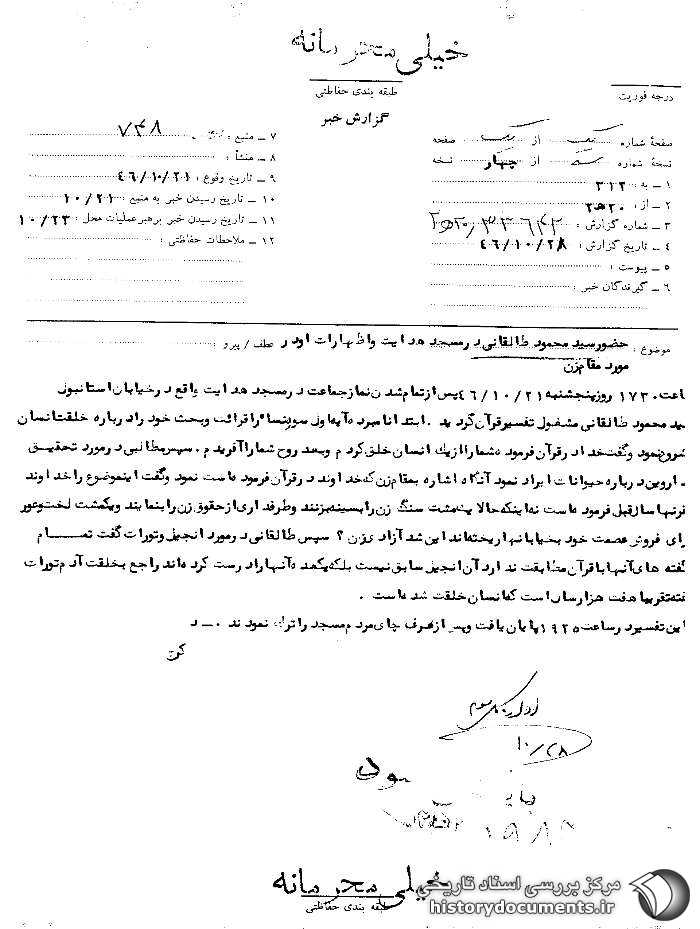 خیلی محرمانه
طبقه بندی حفاظتی
درجه فوریت
گزارش خبر
صفحهٔ شماره یک از یک صفحه
نسخهٔ شماره از چهار نسخه
۱ ـ به : ۳۱۲
۲ ـ از : ۲۰ه۲
۳ ـ شماره گزارش :
۴ ـ تاریخ گزارش : ۴۶/۱۰/۲۸
۵ ـ پیوست :
۶ ـ گیرندگان خبر :
۷ ـ منبع : ۷۴۸
۸ ـ منشأ :
۹ ـ تاریخ وقوع : ۴۶/۱۰/۲۱
۱۰ ـ تاریخ رسیدن خبر به منبع : ۱۰/۲۱
۱۱ ـ تاریخ رسیدن خبر برهبر عملیات محل : ۱۰/۲۳
۱۲ ـ ملاحظات حفاظتی :
موضوع : حضور سید محمود طالقانی در مسجد هدایت و اظهارات او در عطف / پیرو :
مورد مقام زن
اعت ۱۷۳۰ روز پنجشنبه ۴۶/۱۰/۲۱ پس از تمام شدن نماز جماعت در مسجد هدایت واقع در خیابان استانبول
ید محمود طالقانی مشغول تفسیر قرآن گردید . ابتدا نامبرده آیه اول سوره نسا را قرائت و بحث خود را درباره خلقت انسان
شروع نمود و گفت خدا در قرآن فرموده شما را از یك انسان خلق کردم و بعد روح شما را آفریدم . سپس مطالبی در مورد تحقیق
اروین درباره حیوانات ایراد نمود آنگاه اشاره بمقام زن که خداوند در قرآن فرموده است نمود و گفت این موضوع را خداوند
قرنها سال قبل فرموده است نه اینکه حالا یك مشت سنگ زن را بسینه بزنند و طرفداری از حقوق زن را بنمایند و یکمشت لخت و عور
رای فروش عصمت خود بخیابانها ریخته اند این شد آزادی زن ؟ سپس طالقانی در مورد انجیل و تورات گفت تمام
گفته های آنها با قرآن مطابقت ندارد آن انجیل سابق نیست بلکه یکعده آنها را درست کرده اند راجع بخلقت آدم تورات
فته تقریبا هفت هزار سال است که انسان خلقت شده است .
این تفسیر در ساعت ۱۹۲۵ پایان یافت و پس از صرف چای مردم مسجد را ترك نمودند . ـ د
۱۰/۲۸
خیلی محرمانه
طبقه بندی حفاظتی
مرکز بررسی اسناد تاریخی
historydocuments.ir